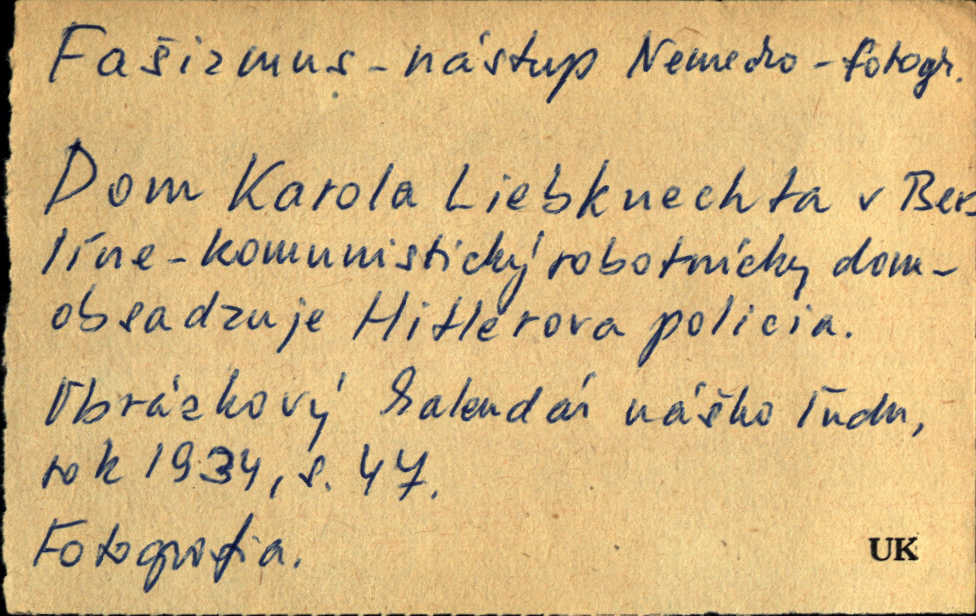 Fašizmus - nástup Nemecko - fotogr.
Dom Karola Liebknechta v Ber
líne - komunistický robotnícky dom -
obsadzuje Hitlerova policia.
Obrázkový kalendár nášho ľudu,
rok 1934, s. 47.
Fotografia.
UK